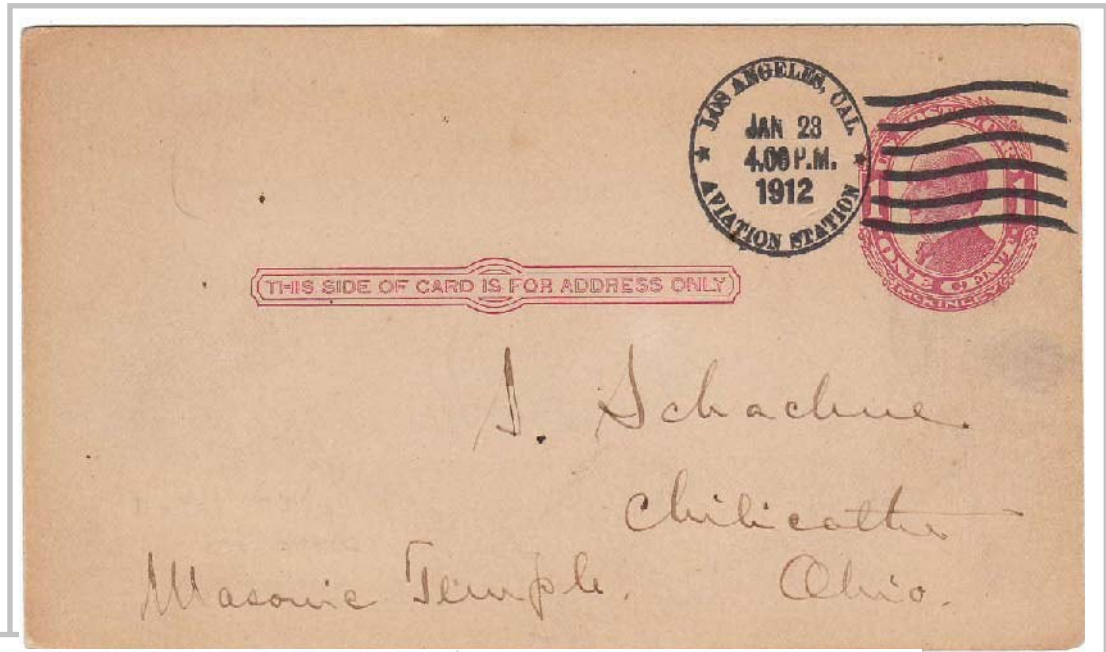 LOS ANGELES, CAL.
JAN 23
4.00 P.M.
1912
AVIATION STATION
THIS SIDE OF CARD IS FOR ADDRESS ONLY
S. Schachne
Chilicothe
Masonic Temple. Ohio.